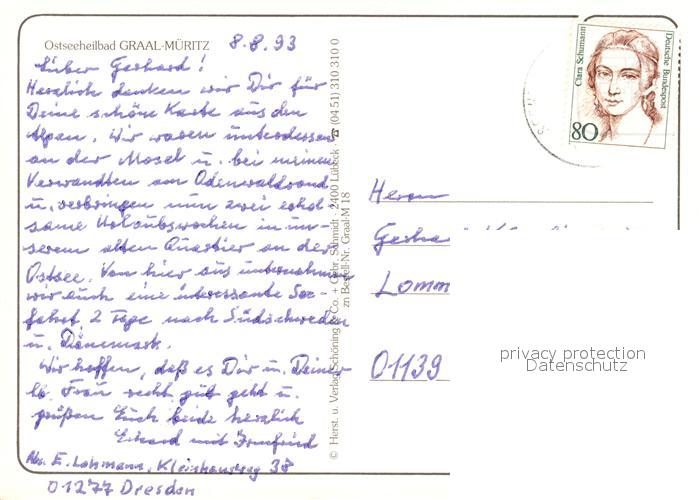 Ostseeheilbad GRAAL-MÜRITZ 8.8.93
Lieber Gerhard!
Herzlich danken wir Dir für
Deine schöne Karte aus den
Alpen. Wir waren unterdessen
an der Mosel u. bei meinen
Verwandten am Odenwaldrand
u. verbringen nun zwei erhol-
same Urlaubswochen in un-
serem alten Quartier an der
Ostsee. Von hier aus unternahmen
wir auch eine interessante See-
fahrt, 2 Tage nach Südschweden
u. Dänemark.
Wir hoffen, daß es Dir u. Deiner
lb. Frau recht gut geht u.
grüßen Euch beide herzlich
Erhard mit Irmfried
Abs. E. Lohmann, 38
01277 Dresden
© Herst. u. Verlag Schöning & Co. + Gebr. Schmidt · 2400 Lübeck · ☎ (04 51) 310 310 0
Bestell-Nr. Graal-M 18
Clara Schumann
Deutsche Bundespost
80
Herrn
Gerha
Lomm
01139
privacy protection
Datenschutz